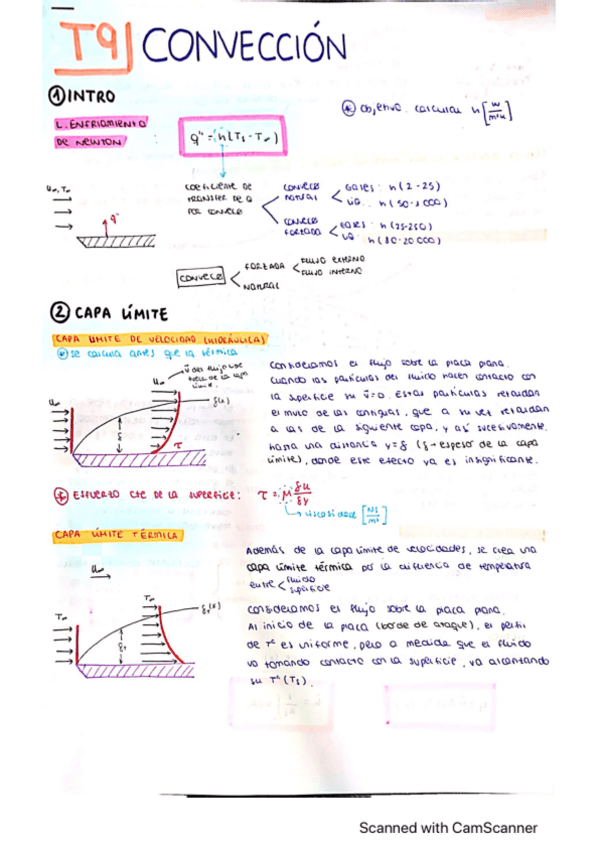 T9 CONVECCIÓN
① INTRO
L. ENFRIAMIENTO
DE NEWTON
q" = h(Ts - T∞)
* Objetivo: calcular h [W/m²K]
U∞, T∞
q"
COEFICIENTE DE
TRANSFER DE Q
POR CONVECC
CONVECC
NATURAL
GASES: h (2-25)
LIQ: h (50-1000)
CONVECC
FORZADA
GASES: h (25-250)
LIQ: h (50-20 000)
CONVECC
FORZADA
FLUJO EXTERNO
FLUJO INTERNO
NATURAL
② CAPA LÍMITE
CAPA LIMITE DE VELOCIDAD (HIDRÁULICA)
* se calcula antes que la térmica
U∞
U∞
τ
Consideramos el flujo sobre la placa plana.
Cuando las partículas del fluido hacen contacto con
la superficie su v=0. Estas partículas retardan
el mvto de las contiguas, que a su vez retardan
a las de la siguiente capa, y así sucesivamente,
hasta una distancia y=δ (δ→espesor de la capa
límite), donde este efecto ya es insignificante.
* ESFUERZO CTE DE LA SUPERFICIE: τ = μ δu/δy
viscosidad [Ns/m²]
CAPA LÍMITE TÉRMICA
U∞
T∞
T∞
Además de la capa límite de velocidades, se crea una
capa límite térmica por la diferencia de temperatura
entre
fluido
superficie
Consideramos el flujo sobre la placa plana.
Al inicio de la placa (borde de ataque), el perfil
de Tª es uniforme, pero a medida que el fluido
va tomando contacto con la superficie, va alcanzando
su Tª (Ts).
Scanned with CamScanner